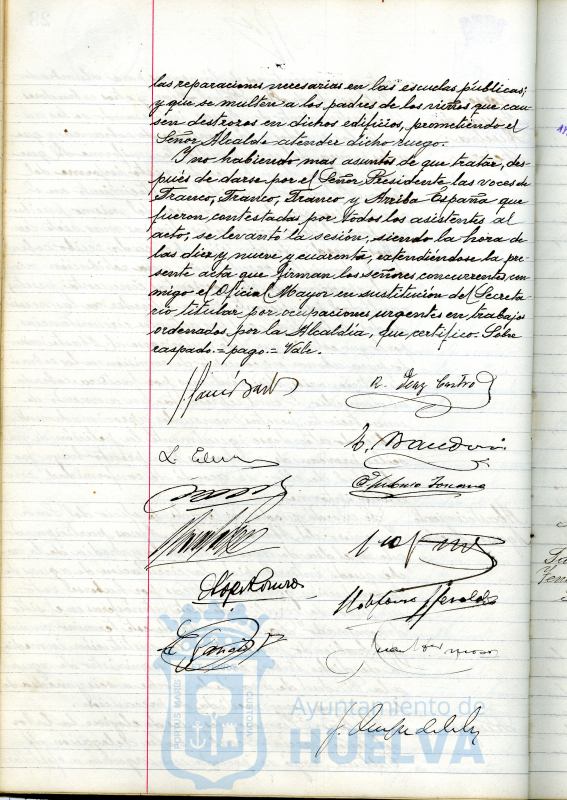 las reparaciones necesarias en las escuelas públicas;
y que se multen a los padres de los niños que cau-
sen destrozos en dichos edificios, prometiendo el
Señor Alcalde atender dicho ruego.
Y no habiendo mas asuntos de que tratar, des-
pués de darse por el Señor Presidente las voces de
Franco, Franco, Franco y Arriba España que
fueron contestadas por todos los asistentes al
acto, se levantó la sesión, siendo la hora de
las diez y nueve y cuarenta, extendiéndose la pre-
sente acta que firman los señores concurrentes con-
migo el Oficial Mayor en sustitución del Secreta-
rio titular por ocupaciones urgentes en trabajos
ordenados por la Alcaldía, que certifico.- Sobre
raspado.=pago.= Vale.
R. Diaz Castro
Antonio
López Romero
Ildefonso
Juan
Ayuntamiento de
HUELVA
PORTUS MARIS
CUSTODIA